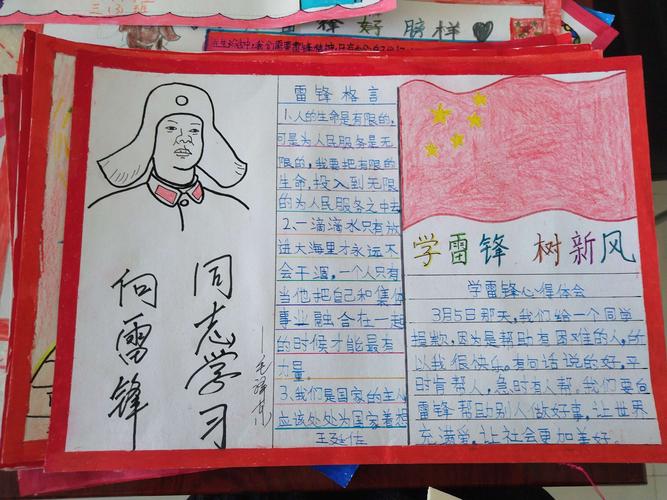 三(3)班
雷锋好榜样
向雷锋
同志学习
毛泽东
雷锋格言
1、人的生命是有限的,
可是为人民服务是无
限的,我要把有限的
生命,投入到无限
的为人民服务之中去
2、一滴滴水只有放
进大海里才永远不
会干涸,一个人只有
当他把自己和集体
事业融合在一起
的时候才能最有
力量。
3、我们是国家的主人
应该处处为国家着想
学雷锋 树新风
学雷锋心得体会
3月5日那天,我们给一个同学
捐款,因为是帮助有困难的人,所
以我很快乐。有句话说的好,平
时肯帮人,急时有人帮,我们要向
雷锋帮助别人做好事,让世界
充满爱,让社会更加美好。